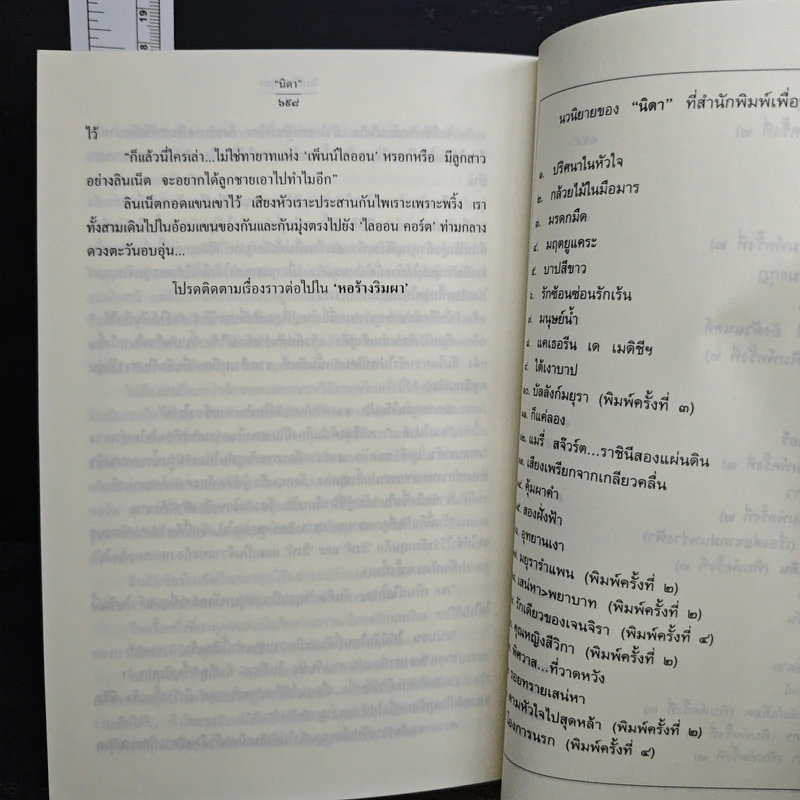 8 19
"นิดา"
๖๙๘
ไว้
"ก็แล้วนี่ใครเล่า...ไม่ใช่ทายาทแห่ง 'เพ็นน์ไลออน' หรอกหรือ มีลูกสาว
อย่างลินเน็ต จะอยากได้ลูกชายเอาไปทำไมอีก"
ลินเน็ตกอดแขนเขาไว้ เสียงหัวเราะประสานกันไพเราะเพราะพริ้ง เรา
ทั้งสามเดินไปในอ้อมแขนของกันและกันมุ่งตรงไปยัง 'ไลออน คอร์ต' ท่ามกลาง
ดวงตะวันอบอุ่น...
โปรดติดตามเรื่องราวต่อไปใน 'หอร้างริมผา'
นวนิยายของ "นิดา" ที่สำนักพิมพ์เพื่อ
๑. ปริศนาในหัวใจ
๒. กล้วยไม้ในมือมาร
๓. มรดกมืด
๔. มฤตยูแคระ
๕. บาปสีขาว
๖. รักซ้อนซ่อนรักเร้น
๗. มนุษย์น้ำ
๘. แคเธอรีน เด เมดิชีฯ
๙. ใต้เงาบาป
๑๐. บัลลังก์มยุรา (พิมพ์ครั้งที่ ๓)
๑๑. ก็แค่ลอง
๑๒. แมรี่ สจ๊วร์ต...ราชินีสองแผ่นดิน
๑๓. เสียงเพรียกจากเกลียวคลื่น
๑๔. คุ้มผาคำ
๑๕. สองฝั่งฟ้า
อุทยานเงา
มยุรารำแพน (พิมพ์ครั้งที่ ๒)
เสน่หา>พยาบาท (พิมพ์ครั้งที่ ๒)
รักเดียวของเจนจิรา (พิมพ์ครั้งที่ ๔)
คุณหญิงสีวิกา (พิมพ์ครั้งที่ ๒)
พิศวาส...ที่วาดหวัง
รอยทรายเสน่หา
ตามหัวใจไปสุดหล้า (พิมพ์ครั้งที่ ๒)
การนรก (พิมพ์ครั้งที่ ๔)